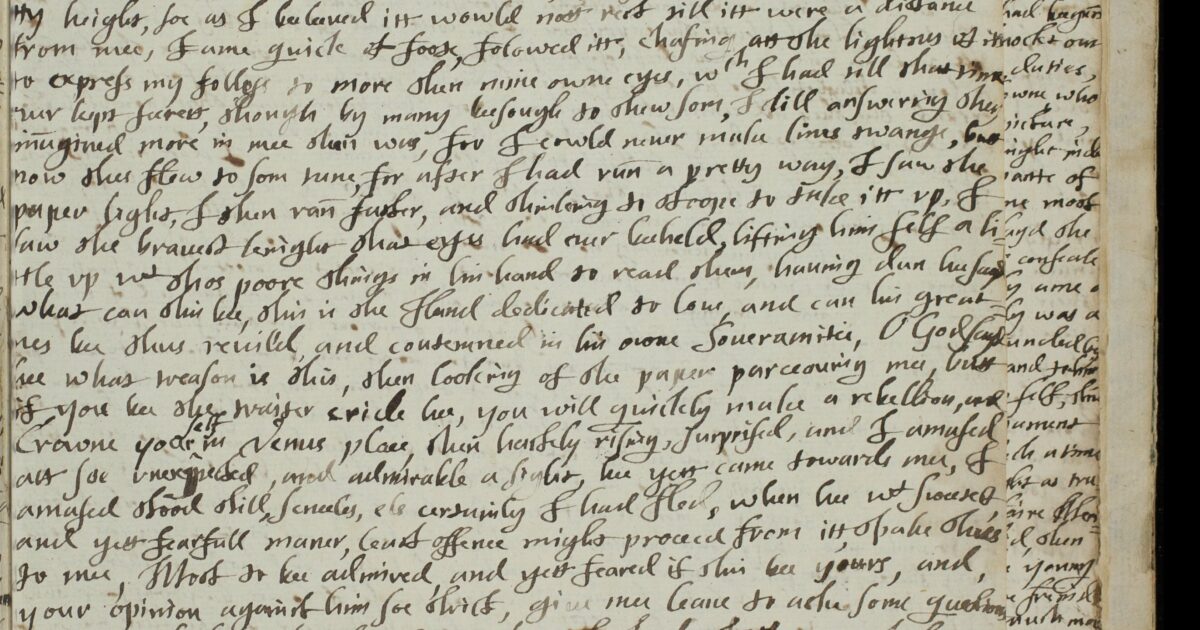 ty height, soe as I beeleved itt would nott rest till itt were a distance
from mee, I ame quick of foote, folowed itt, chasing att the lightnes of itt
to express my follyes to more then mine owne eyes, wch I had till that time
ever kept secrett, though by many beesough to shew som, I still answering they
imagined more in mee then was, for I cowld never make lines swange, butt
now they flew to som tune, for after I had runn a pretty way, I saw the
paper light, I then rann faster, and thinking to stoope to take itt up, I
saw the bravest knight that eyes had ever beeheld, lifting him self a li
ttle up wt thos poore things in his hand to read them, having dun hee sayd
what can this bee, this is the Iland dedicated to love, and can his great
nes bee thus revild, and contemned in his owne Soverainitie, O God sayd
hee what treason is this, then looking of the paper parceaving mee, butt
if you bee the writer cride hee, you will quickly make a rebellion, and
Crowne your self in Venus place, then hastely rising, surprised, and I amased
att soe unexpected, and admirable a sight, hee yett came towards mee, I
amased stood still, senceles, els certainly I had fled, when hee wt sweetest,
and yett fearfull maner, least offence might proceed from itt, spake thus
to mee, Most to bee admired, and yett feared if this bee yours, and,
your opinion against him soe strict, give mee leave to aske some questions
had begun
mocke our
duties,
owne who
picture,
might
parte of
ne most
ayd she
conseale
y ame
by was a
unded by
and
self,
as tru
d, then
young
much more